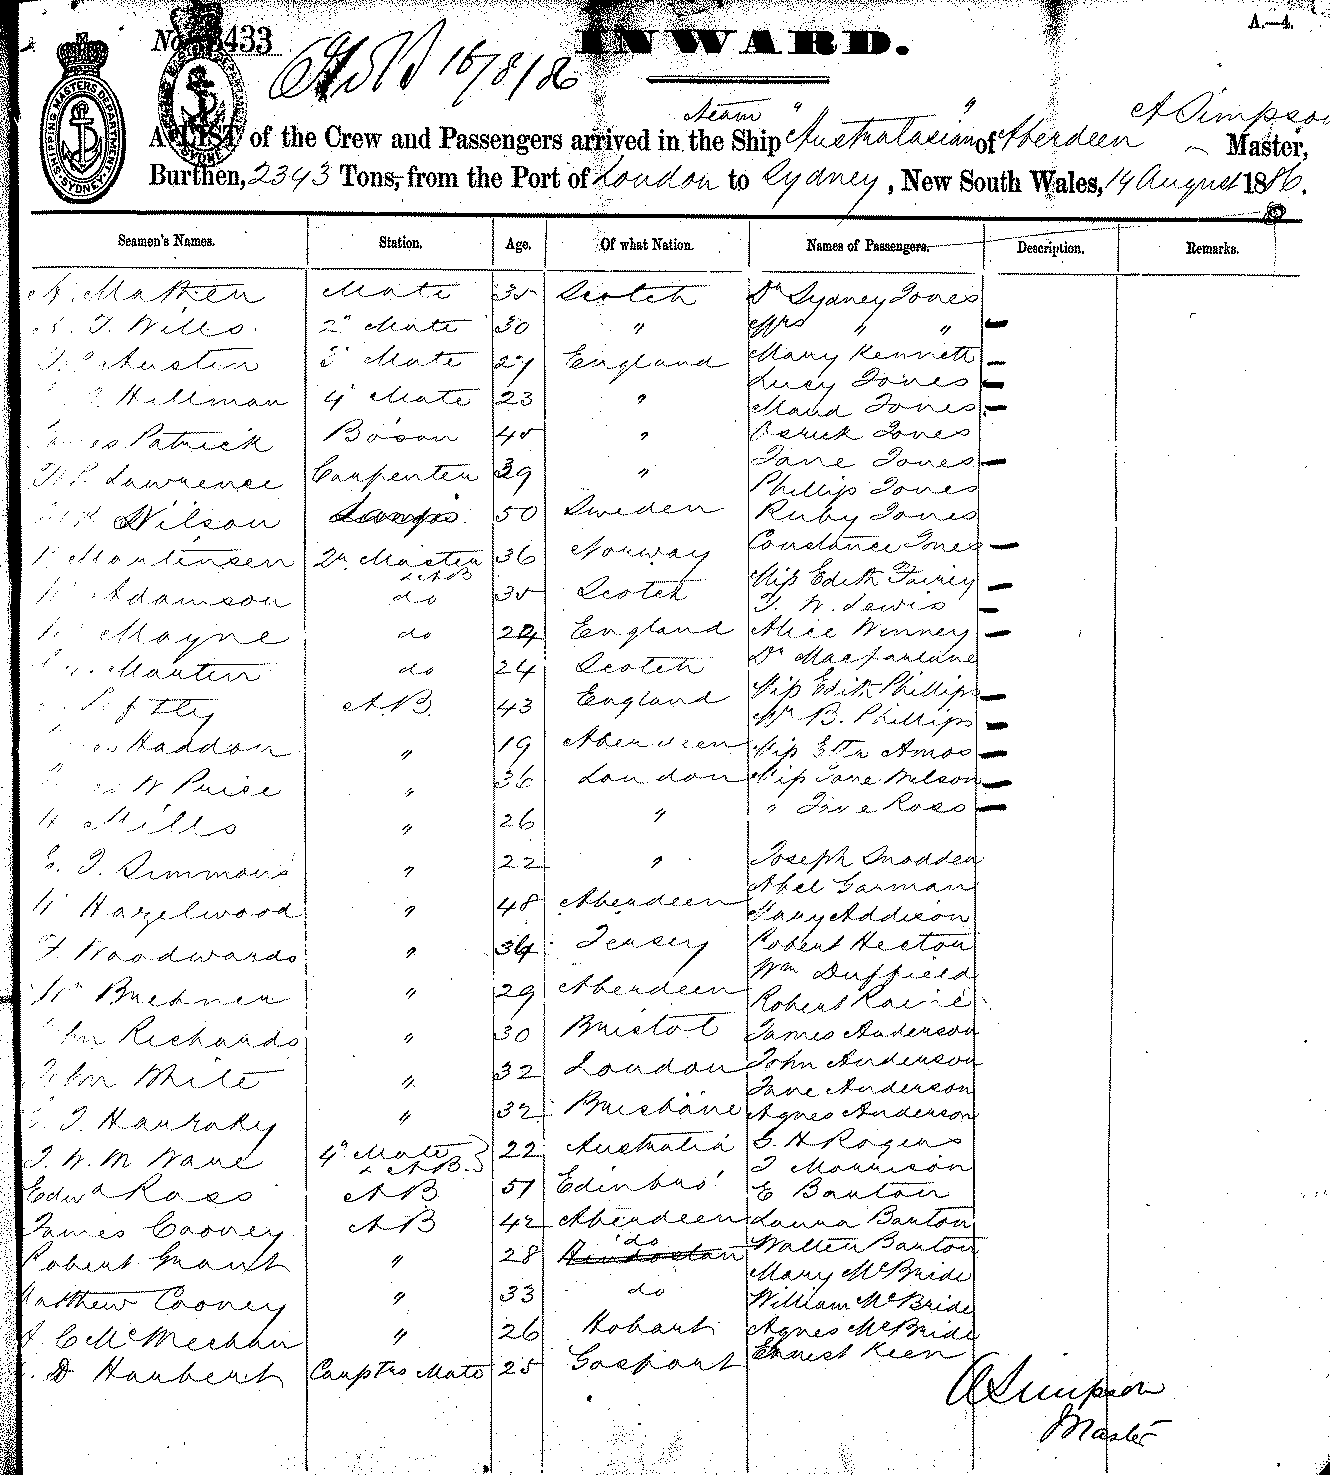 A.—4.
No. 433
INWARD.
16/8/86
SHIPPING MASTERS DEPARTMENT SYDNEY
Steam
A LIST of the Crew and Passengers arrived in the Ship "Australasian" of Aberdeen A Simpson Master,
Burthen, 2343 Tons, from the Port of London to Sydney, New South Wales, 14 August 1886.
Seamen's Names. Station. Age. Of what Nation. Names of Passengers. Description. Remarks.
Mate 35 Scotch Dr Sydney Jones
T. Wills. 2d Mate 30 " Mrs " "
Austin 3 Mate 27 England Mary Kennett
Lucy Jones
Hillman 4 Mate 23 " Maud Jones
James Patrick Bosun 45 " Jones
Lawrence Carpenter 39 " Jane Jones
Phillip Jones
Nilson Lamps 50 Sweden Ruby Jones
Martensen Qr. Master & AB 36 Norway Constance Jones
Adamson do 35 Scotch Miss Edith Fairey
W. Lewis
Mayne do 24 England Alice Winney
Martin do 24 Scotch Dr Macfarlane
AB. 43 England Miss Edith Phillips
Mr B. Phillips
Haddon " 19 Aberdeen Miss Amos
W Price " 36 London Miss Jane Wilson
Mills " 26 " " Jane Ross
T. Simmons " 22 " Joseph Snodden
Abel Garman
W Hazelwood " 48 Aberdeen Addison
F Woodwards " 34 Jersey Robert Hector
Wm Duffield
Wm Buchner " 29 Aberdeen Robert Raine
John Richards " 30 Bristol James Anderson
John White " 32 London John Anderson
Jane Anderson
T Hanrahy " 32 Brisbane Agnes Anderson
T. W. M. Ware 4th Mate & AB. 22 Australia G. H Rogers
T Morrison
Edwd Ross AB 51 Edinbro' E Barton
James Cooney AB 42 Aberdeen Laura Barton
Robert Grant " 28 Hindostan do Walter Barton
Mary McBride
Matthew Cooney " 33 do William McBride
C McMechan " 26 Hobart Agnes McBride
D Harbert Carptrs Mate 25 Gosport Ernest Keen
A Simpson
Master